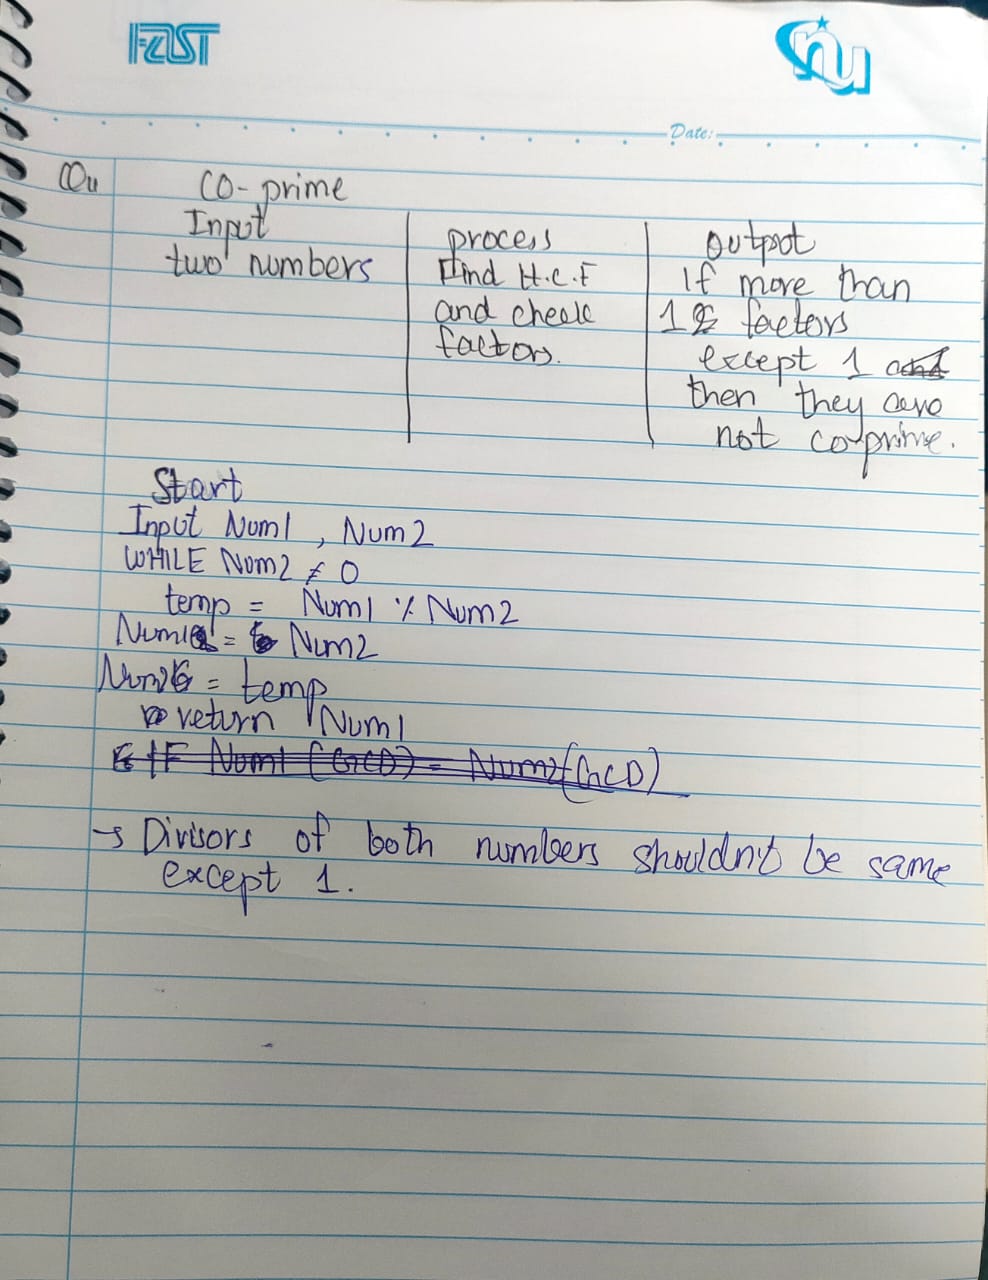 FAST
nu
Date:
Qu
CO-prime
Input
two numbers
process
Find H.C.F
and check
factors.
output
If more than
1 factors
except 1
then they are
not co-prime.
Start
Input Num1 , Num2
WHILE Num2 ≠ 0
temp = Num1 % Num2
Num1 = Num2
Num2 = temp
return Num1
IF Num1 (GCD) = Num2 (GCD)
→ Divisors of both numbers shouldn't be same
except 1.